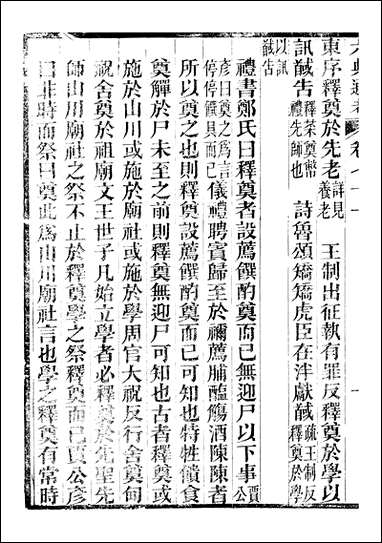 六典通考 卷七十一
東序釋奠於先老詳見養老 王制出征執有罪反釋奠於學以
訊馘告釋菜奠幣禮先師也 詩魯頌矯矯虎臣在泮獻馘疏王制反釋奠於學
以訊馘告
禮書鄭氏曰釋奠者設薦饌酌奠而已無迎尸以下事賈
彥曰奠之為言停停饌具而已儀禮聘賓歸至於禰薦脯醢觴酒陳陳者
所以奠之也則釋奠設薦饌酌奠而已可知也特牲饋食
奠觶於尸未至之前則釋奠無迎尸可知也古者釋奠或
施於山川或施於廟社或施於學周官大祝反行舍奠甸
祝舍奠於祖廟文王世子凡始立學者必釋奠於先聖先
師山川廟社之祭不止於釋奠學之祭釋奠而已賈公彥
曰非時而祭曰奠此為山川廟社言也學之釋奠有常時